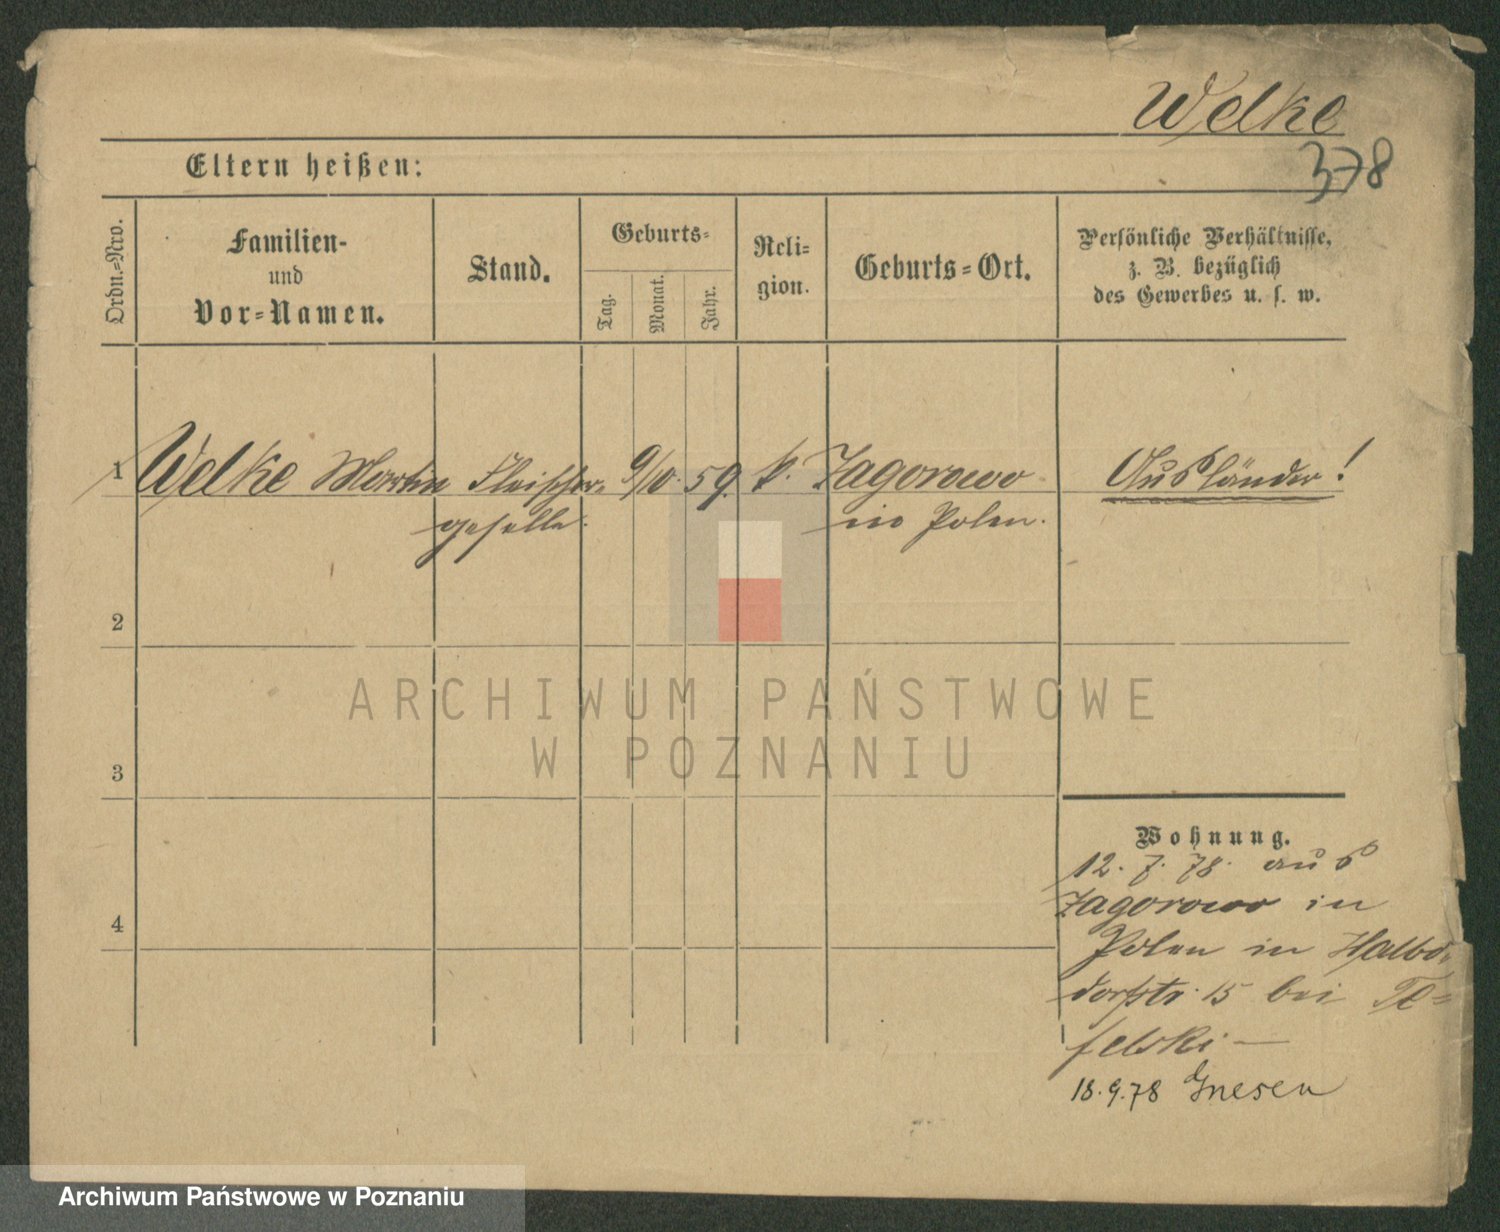 Welke
378
Eltern heißen:
Ordn.=Nro.
Familien-
und
Vor=Namen.
Stand.
Geburts=
Tag.
Monat.
Jahr.
Reli=
gion.
Geburts=Ort.
Persönliche Verhältnisse,
z. B. bezüglich
des Gewerbes u. s. w.
1 Welke Martin Fleischer= 9/10. 59. k. Zagorowo Ausländer!
geselle. in Polen.
2
3
4
ARCHIWUM PAŃSTWOWE
W POZNANIU
Wohnung.
12. 7. 78. aus
Zagorowo in
Polen in Halbd=
dorfstr. 15 bei
felski —
18.9.78 Gnesen
Archiwum Państwowe w Poznaniu